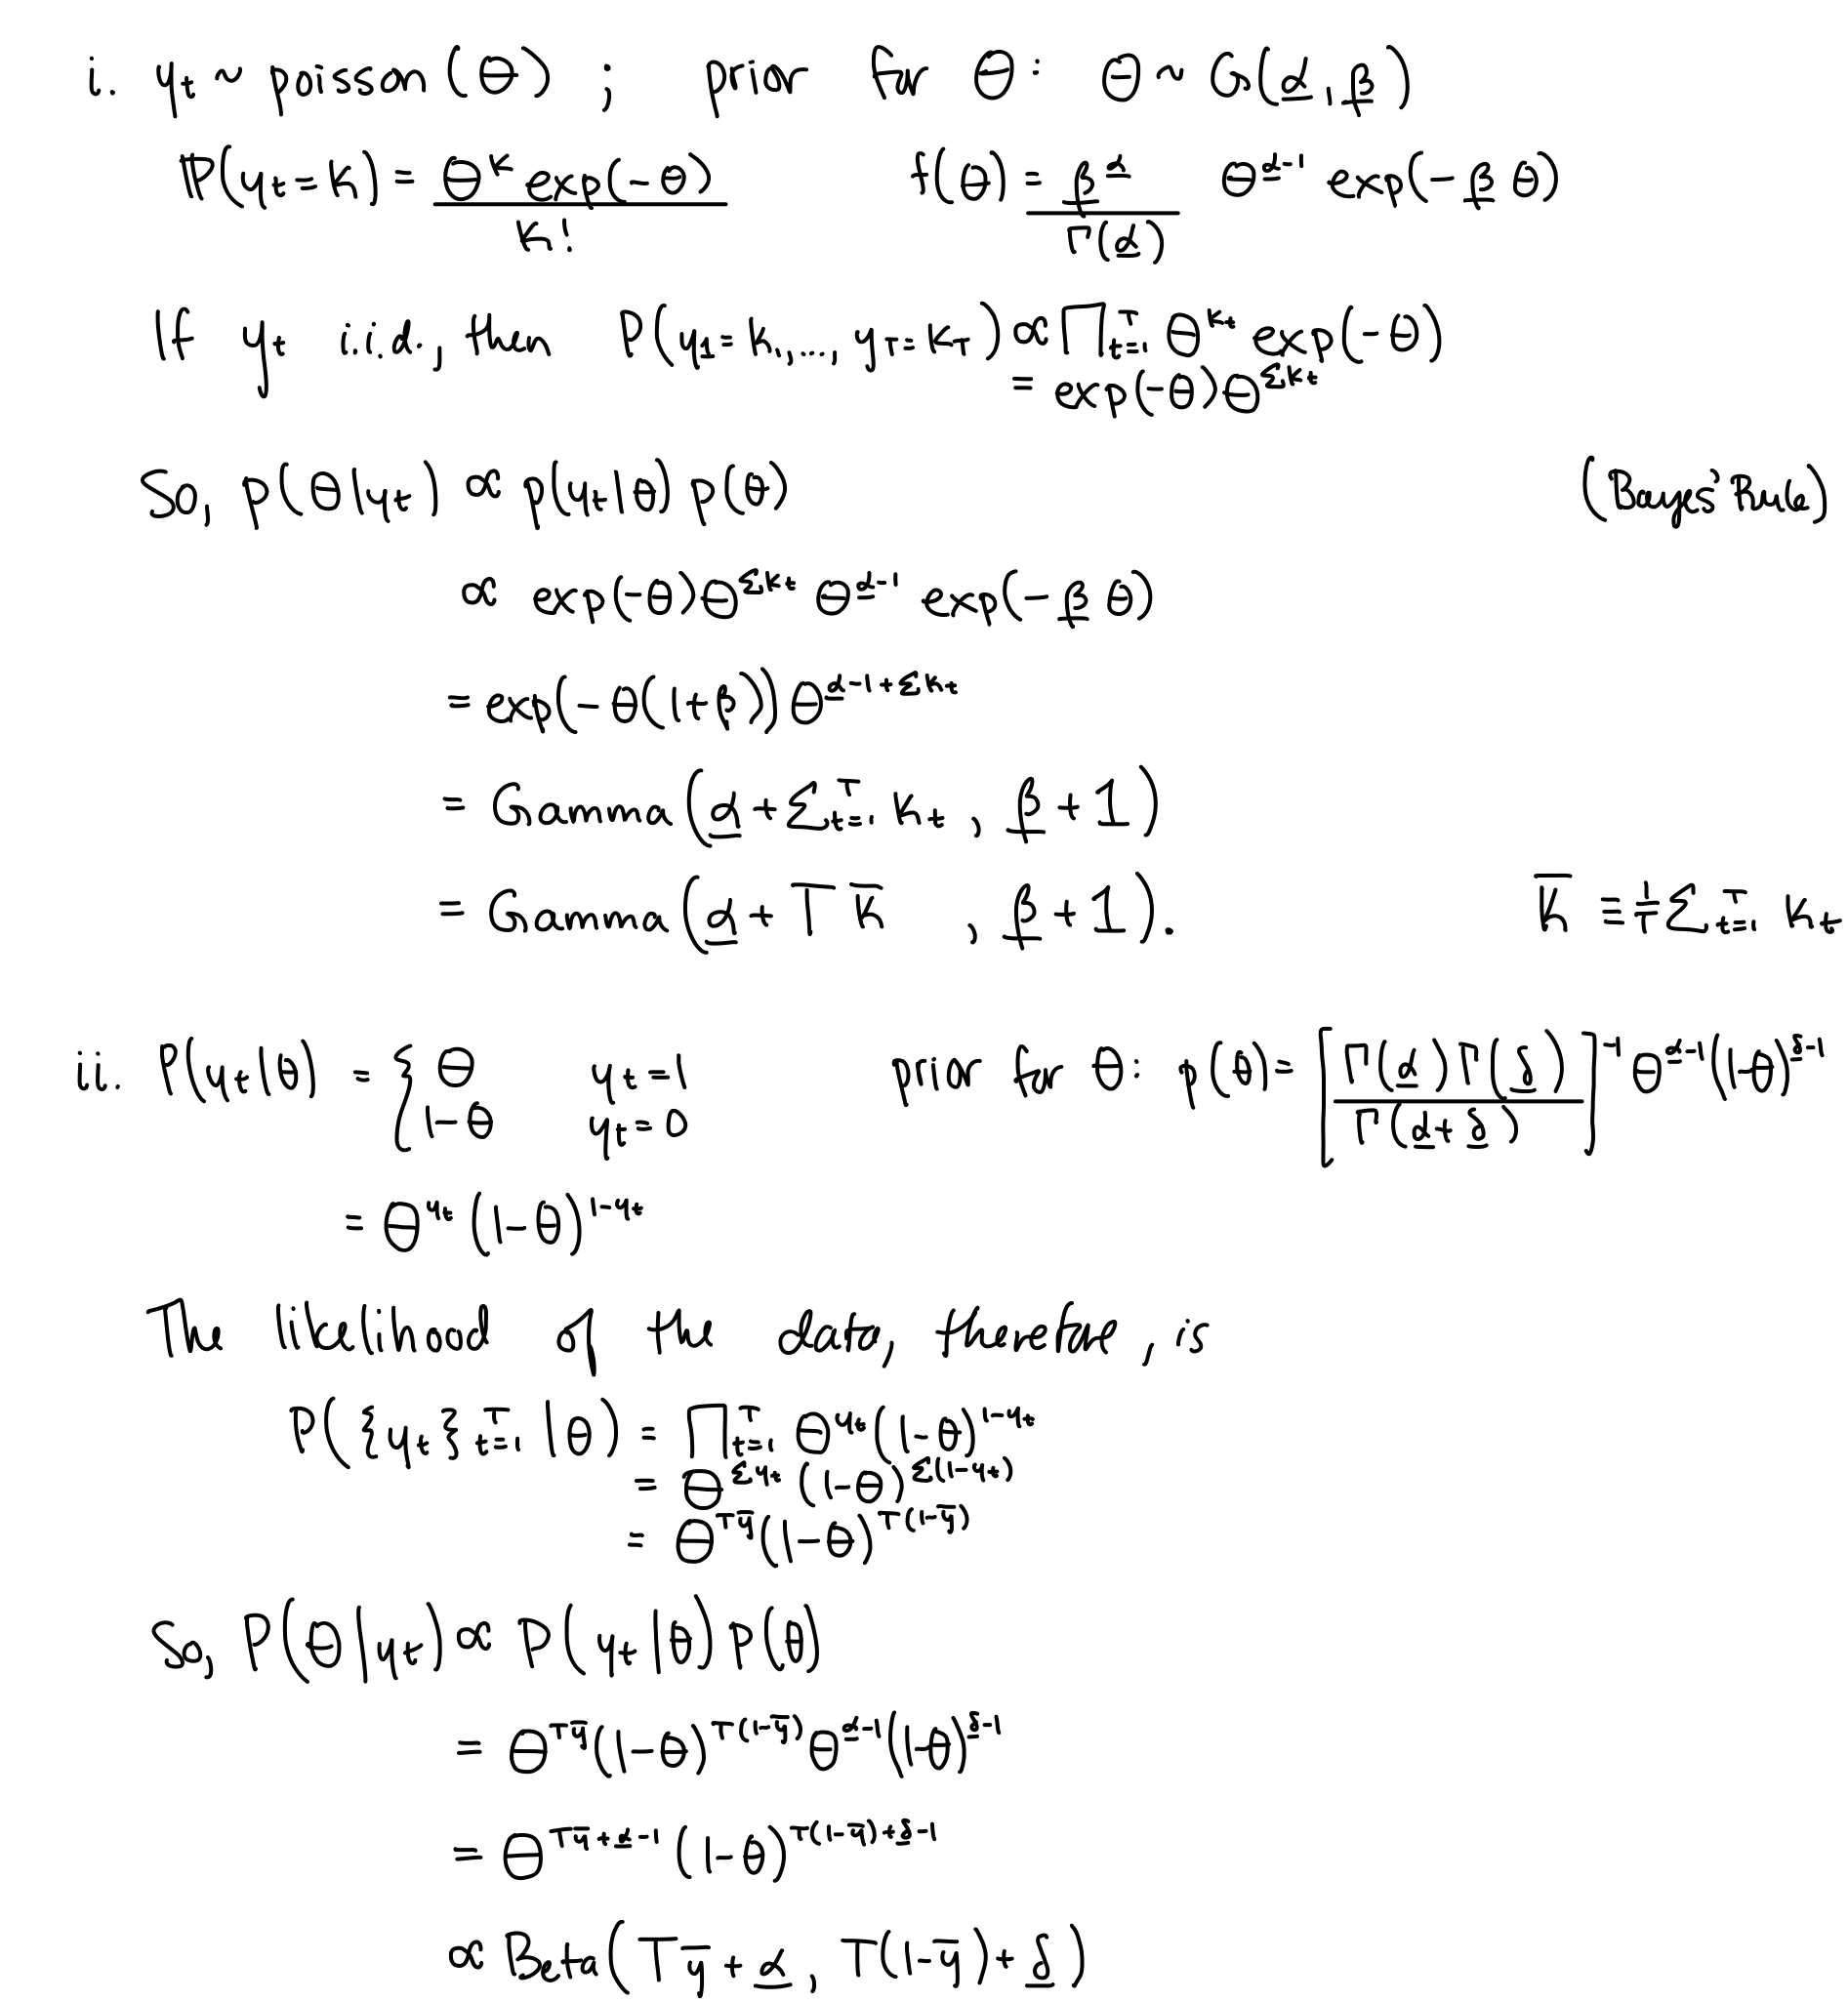 i. yₜ ~ poisson(θ) ; prior for θ: θ ~ G(α̲, β̲)
ℙ(yₜ=k) = θᵏ exp(-θ) / k!    f(θ) = β̲^α̲ / Γ(α̲) θ^(α̲-1) exp(-β̲ θ)
If yₜ i.i.d., then P(y₁=k₁,..., y_T=k_T) ∝ ∏ₜ₌₁ᵀ θ^(kₜ) exp(-θ)
= exp(-θ) θ^(Σkₜ)
So, p(θ|yₜ) ∝ p(yₜ|θ) p(θ)    (Bayes' Rule)
∝ exp(-θ) θ^(Σkₜ) θ^(α̲-1) exp(-β̲ θ)
= exp(-θ(1+β)) θ^(α̲-1+Σkₜ)
= Gamma(α̲ + Σₜ₌₁ᵀ kₜ , β̲+1)
= Gamma(α̲ + T k̄ , β̲+1).    k̄ ≡ 1/T Σₜ₌₁ᵀ kₜ
ii. P(yₜ|θ) = { θ  yₜ=1    prior for θ: p(θ) = [Γ(α̲)Γ(δ̲) / Γ(α̲+δ̲)]⁻¹ θ^(α̲-1) (1-θ)^(δ̲-1)
1-θ  yₜ=0
= θ^(yₜ) (1-θ)^(1-yₜ)
The likelihood of the data, therefore, is
P({yₜ}ₜ₌₁ᵀ |θ) = ∏ₜ₌₁ᵀ θ^(yₜ) (1-θ)^(1-yₜ)
= θ^(Σyₜ) (1-θ)^(Σ(1-yₜ))
= θ^(Tȳ) (1-θ)^(T(1-ȳ))
So, P(θ|yₜ) ∝ P(yₜ|θ) P(θ)
= θ^(Tȳ) (1-θ)^(T(1-ȳ)) θ^(α̲-1) (1-θ)^(δ̲-1)
= θ^(Tȳ+α̲-1) (1-θ)^(T(1-ȳ)+δ̲-1)
∝ Beta(Tȳ + α̲, T(1-ȳ) + δ̲)